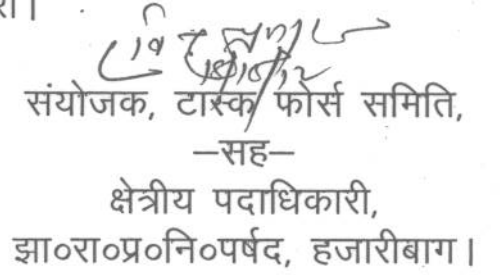 संयोजक, टास्क फोर्स समिति,
—सह—
क्षेत्रीय पदाधिकारी,
झा०रा०प्र०नि०पर्षद, हजारीबाग।